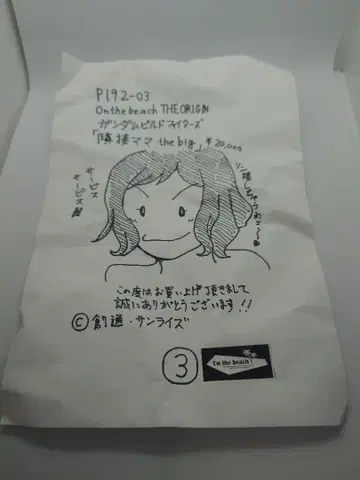 P192-03
On the beach THE ORIGIN
ガンダムビルドファイターズ
「隣接ママ the big」 ¥20,000
サービス
サービス
リン接しちゃうわよ〜♥
この度はお買い上げ頂きまして
誠にありがとうございます!!
©創通・サンライズ
③
On the beach!